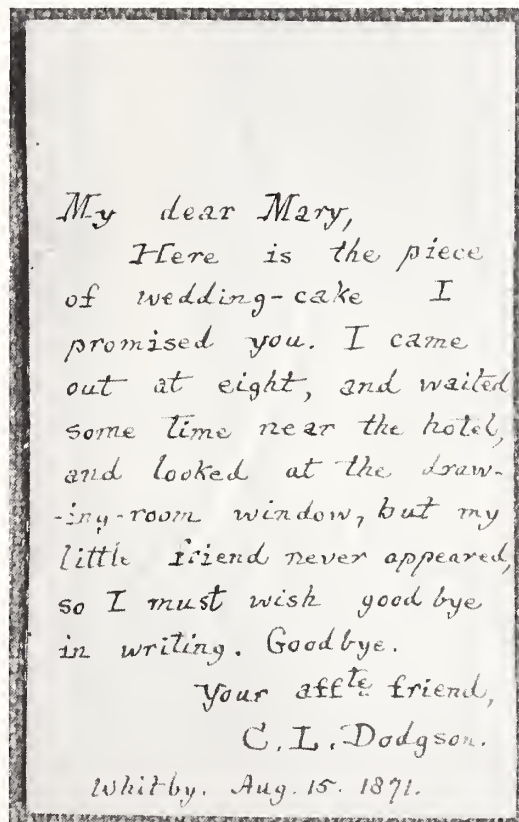 My dear Mary,
Here is the piece
of wedding-cake I
promised you. I came
out at eight, and waited
some time near the hotel,
and looked at the draw-
-ing-room window, but my
little friend never appeared,
so I must wish good bye
in writing. Goodbye.
Your affte friend,
C. L. Dodgson.
Whitby. Aug. 15. 1871.